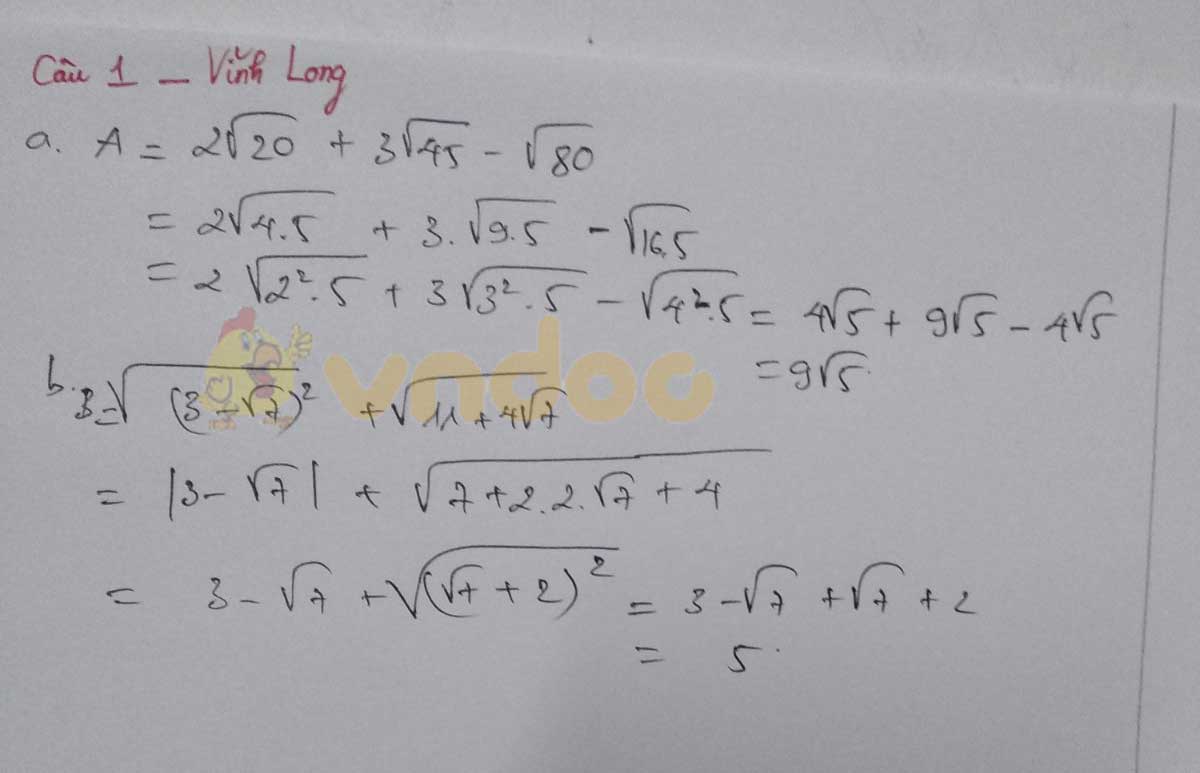 Câu 1 – Vĩnh Long
a. A = 2√20 + 3√45 - √80
= 2√4.5 + 3.√9.5 - √16.5
= 2√2².5 + 3√3².5 - √4².5 = 4√5 + 9√5 - 4√5
= 9√5.
vndoc
b. B=√(3-√7)² + √11+4√7
= |3-√7| + √7+2.2.√7+4
= 3-√7 + √(√7+2)² = 3-√7 + √7 + 2
= 5.